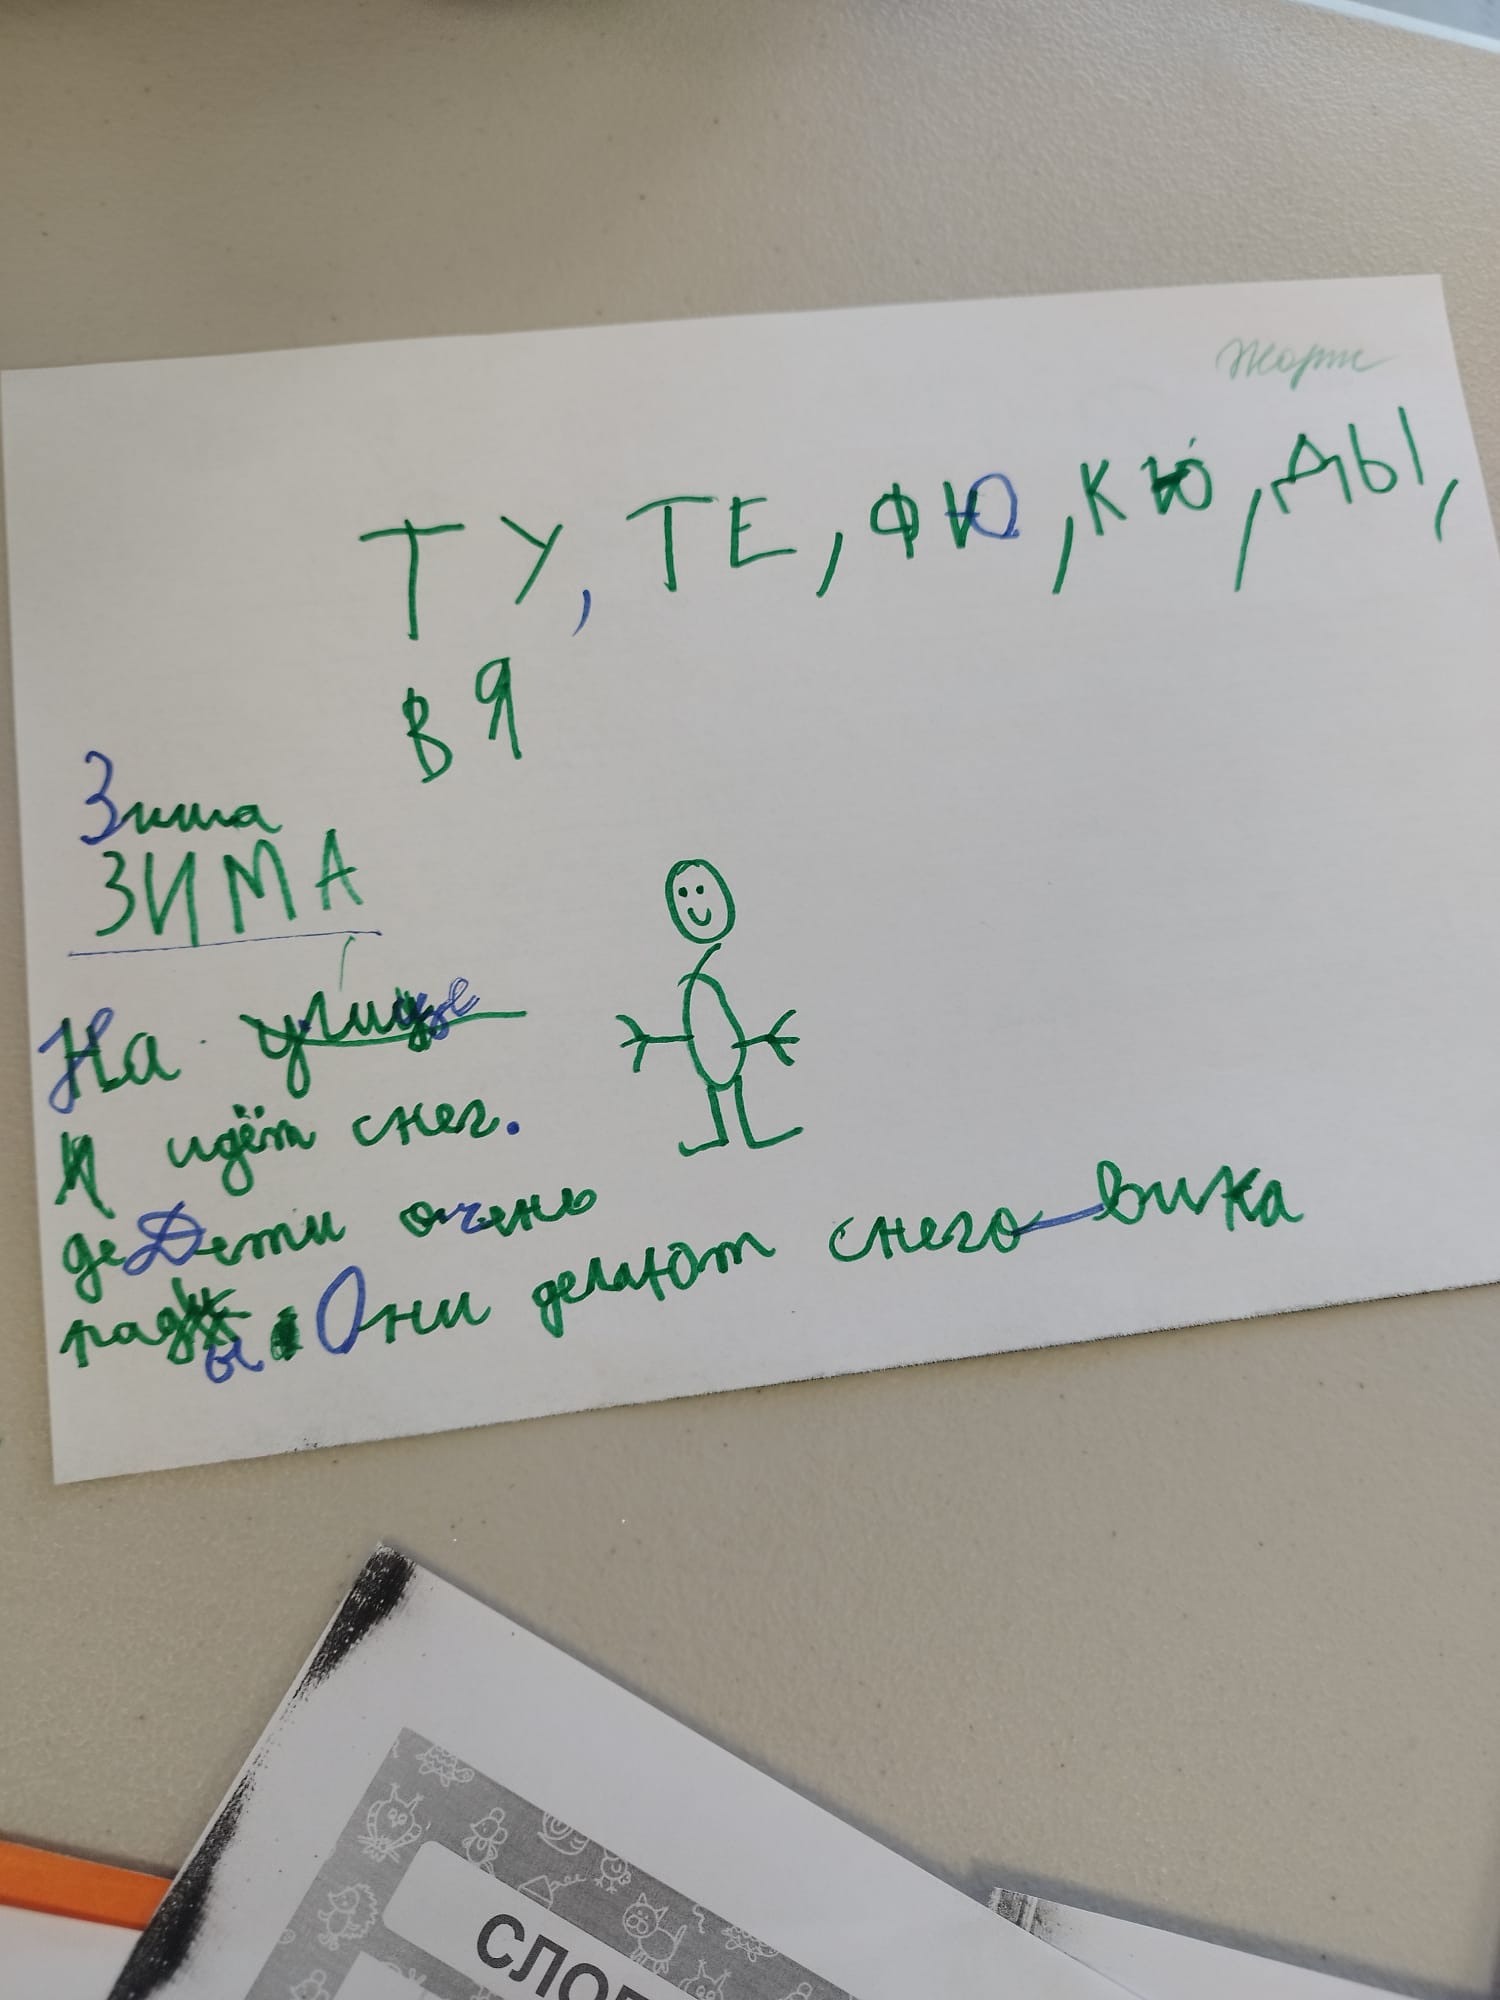 ТУ, ТЕ, ФЮ, КЮ, ДЫ,
ВЯ
Зима
ЗИМА
На улице
идёт снег.
де Дети очень
рады. Они делают снеговика
СЛОГ